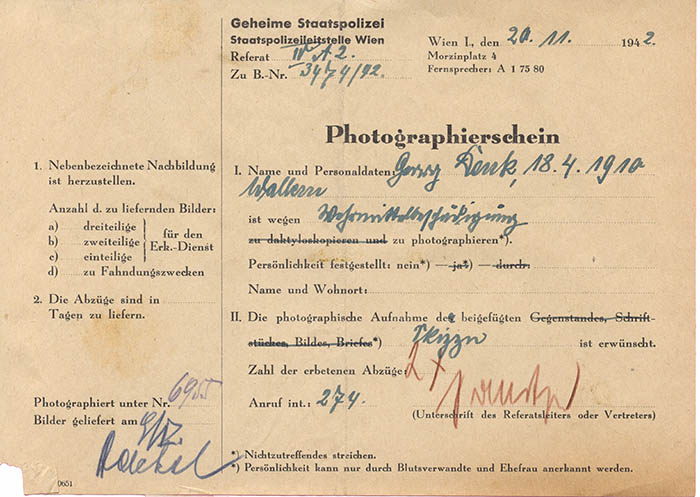 Geheime Staatspolizei
Staatspolizeileitstelle Wien
Referat IV A 2.
Zu B.-Nr. 3474/42.
Wien I., den 20. 11. 1942.
Morzinplatz 4
Fernsprecher: A 1 75 80
Photographierschein
1. Nebenbezeichnete Nachbildung
ist herzustellen.
Anzahl d. zu liefernden Bilder:
a) dreiteilige
b) zweiteilige
c) einteilige
für den
Erk.-Dienst
d) zu Fahndungszwecken
2. Die Abzüge sind in
Tagen zu liefern.
Photographiert unter Nr.
Bilder geliefert am
I. Name und Personaldaten: Georg Denk, 18.4.1910
Wallern
ist wegen Wehrmittelbeschädigung
zu daktyloskopieren und zu photographieren*).
Persönlichkeit festgestellt: nein*) — ja*) — durch:
Name und Wohnort:
II. Die photographische Aufnahme der beigefügten Gegenstandes, Schrift-
stückes, Bildes, Briefes*) Skizze ist erwünscht.
Zahl der erbetenen Abzüge: 2x
Anruf int.: 274.
(Unterschrift des Referatsleiters oder Vertreters)
*) Nichtzutreffendes streichen.
*) Persönlichkeit kann nur durch Blutsverwandte und Ehefrau anerkannt werden.
0651